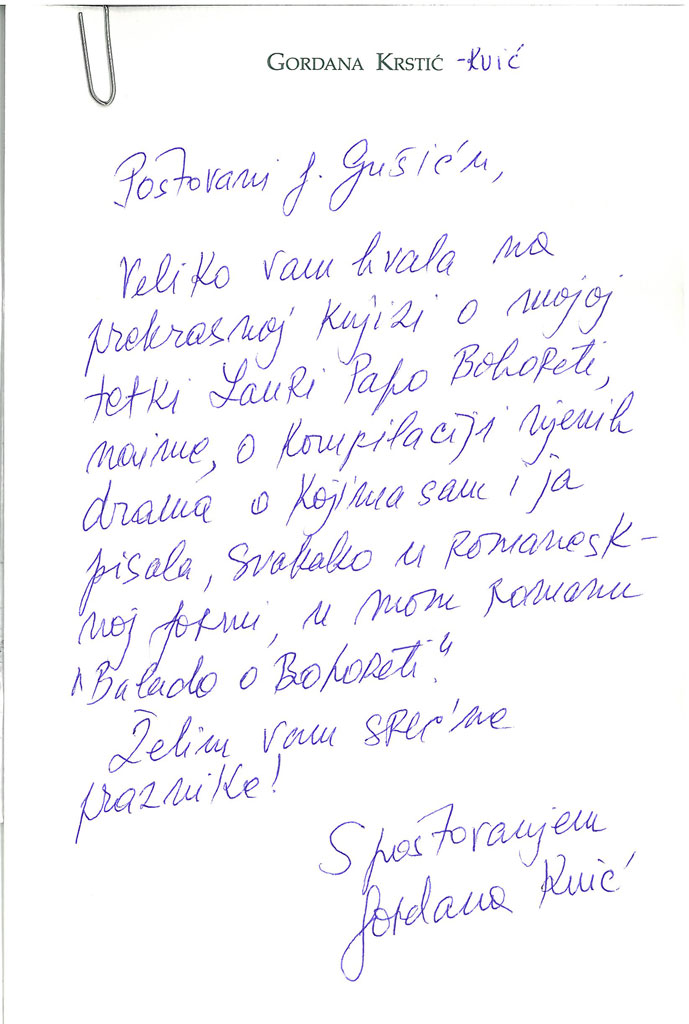 GORDANA KRSTIĆ -Kuić
Poštovani g. Gušiću,
Veliko vam hvala na
prekrasnoj knjizi o mojoj
tetki Lauri Papo Bohoreti,
naime, o kompilaciji njenih
drama o kojima sam i ja
pisala, svakako u romanesk-
noj formi, u mom romanu
"Balada o Bohoreti."
Želim vam srećne
praznike!
S poštovanjem
Gordana Kuić